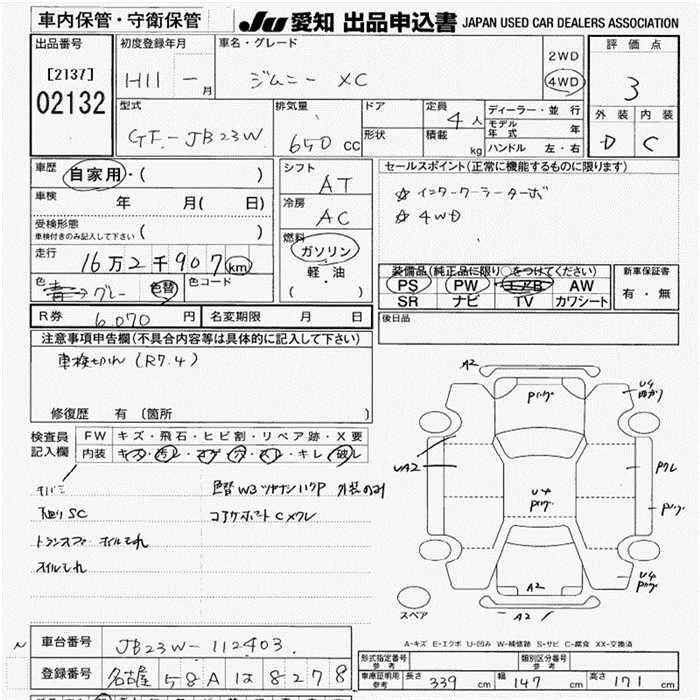 車内保管・守衛保管 JU 愛知 出品申込書 JAPAN USED CAR DEALERS ASSOCIATION
出品番号 初度登録年月 車名・グレード 2WD 評価点
[2137] H11 － 月 ジムニー XC 4WD 3
02132
型式 排気量 ドア 定員 4人 ディーラー・並行 外装 内装
GF-JB23W 650 cc 形状 積載 kg モデル年式 年 D C
ハンドル 左・右
車歴 自家用・( ) シフト AT セールスポイント(正常に機能するものに限ります)
車検 年 月( 日) 冷房 AC ☆ インタークーラーターボ
受検形態 ☆ 4WD
車検付きのみ記入して下さい ( )
走行 16万2千907 km 燃料 ガソリン
軽・油
( )
色 青→グレー 色替 色コード 装備品(純正品に限り○をつけてください) 新車保証書
PS PW エアB AW 有・無
SR ナビ TV カワシート
R券 6,070 円 名変期限 月 日 後日品
注意事項申告欄(不具合内容等は具体的に記入して下さい)
車検切れ(R7.4)
修復歴 有 (箇所 )
検査員 FW キズ・飛石・ヒビ割・リペア跡・X要
記入欄 内装 キズ・汚レ・コゲ・穴・スレ・キレ・破レ
色替 W3 ツヤナシハクP 外装のみ
下廻りSC コアサポートCメクレ
トランスファ オイルもれ
オイルもれ
A2
Pハゲ
U4
曲がり
UA2
U4
Pハゲ
Pクレ
Pハゲ
A2
U4
Pハゲ
A2
スペア
A-キズ E-エクボ U-凹み W-補修跡 S-サビ C-腐食 XX-交換済
車台番号 JB23W-112403 形式指定番号 参考 類別区分番号 参考
登録番号 名古屋 58A は 8278 車庫証明用 参考 長さ 339 cm 幅 147 cm 高さ 171 cm